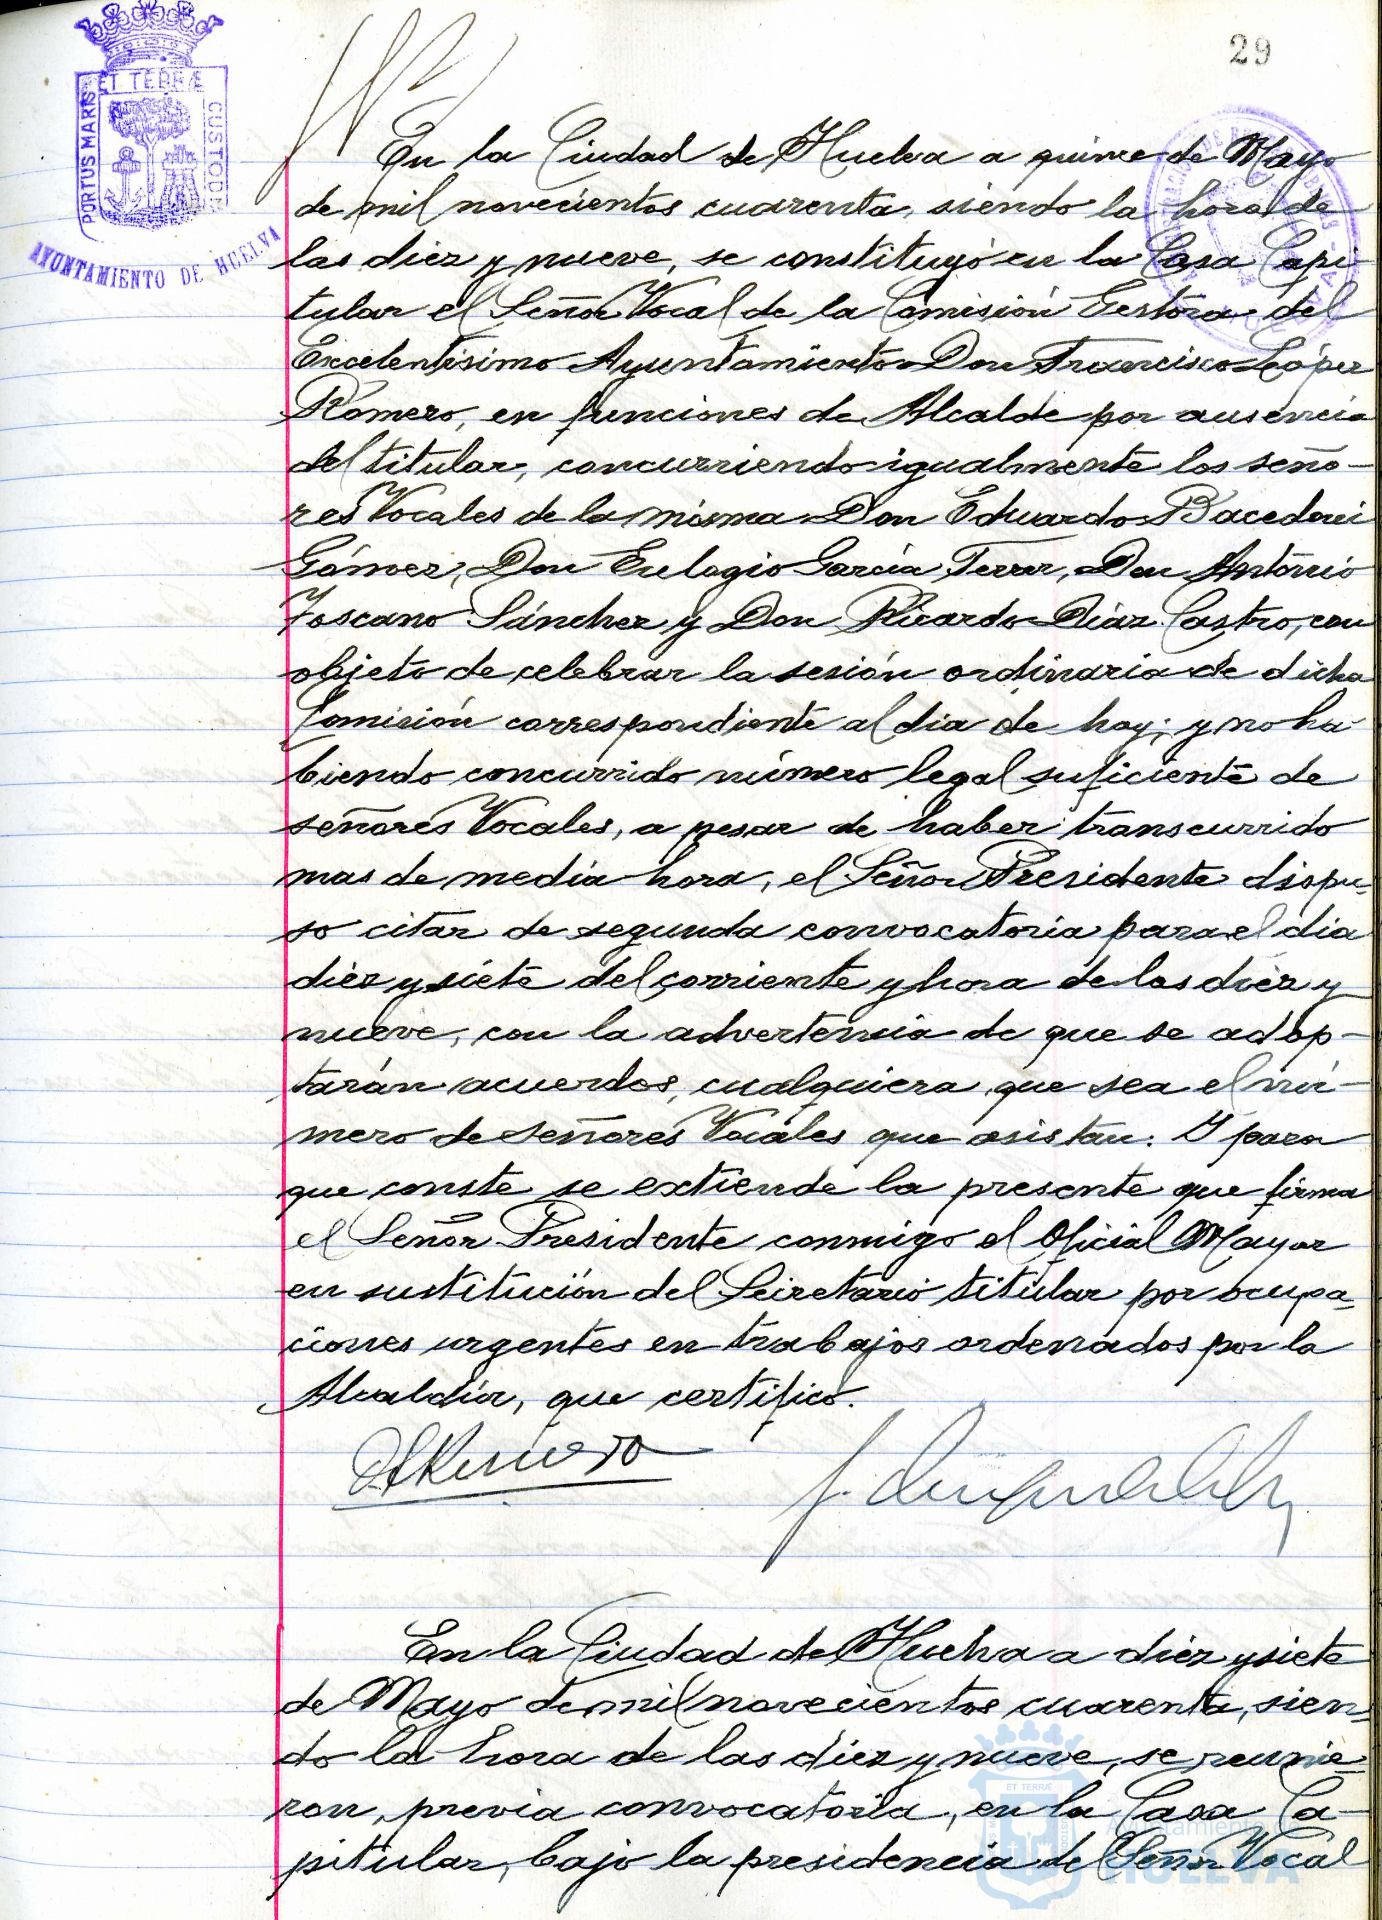 29
PORTUS MARIS ET TERRÆ CUSTODIA
AYUNTAMIENTO DE HUELVA
En la Ciudad de Huelva a quince de Mayo
de mil novecientos cuarenta, siendo la hora de
las diez y nueve, se constituyó en la Casa Capi-
tular el Señor Vocal de la Comisión Gestora del
Excelentisimo Ayuntamiento Don Francisco López
Romero, en funciones de Alcalde por ausencia
del titular, concurriendo igualmente los seño-
res Vocales de la misma Don Eduardo Bacedoni
Gómez, Don Eulogio García Ferrer, Don Antonio
Toscano Sánchez y Don Ricardo Díaz Castro, con
objeto de celebrar la sesión ordinaria de dicha
Comisión correspondiente al dia de hoy; y no ha-
biendo concurrido número legal suficiente de
señores Vocales, a pesar de haber transcurrido
mas de media hora, el Señor Presidente dispu-
so citar de segunda convocatoria para el dia
diez y siete del corriente y hora de las diez y
nueve, con la advertencia de que se adop-
tarán acuerdos, cualquiera que sea el nú-
mero de señores Vocales que asistan. Y para
que conste se extiende la presente que firma
el Señor Presidente conmigo el Oficial Mayor
en sustitución del Secretario titular por ocupa-
ciones urgentes en trabajos ordenados por la
Alcaldía, que certifico.
En la Ciudad de Huelva a diez y siete
de Mayo de mil novecientos cuarenta, sien-
do la hora de las diez y nueve, se reunie-
ron, previa convocatoria, en la Casa Ca-
pitular, bajo la presidencia del Señor Vocal
Ayuntamiento de
HUELVA